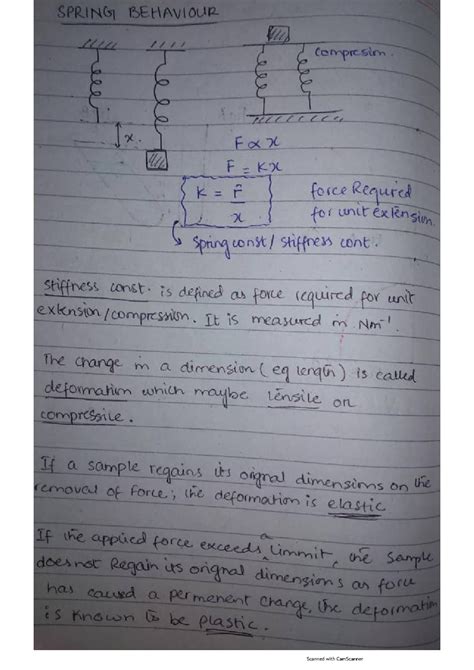 SPRING BEHAVIOUR
compression.
x.
F ∝ x
F = Kx
K = F/x
force Required
for unit extension.
Spring const / stiffness cont.
stiffness const. is defined as force required for unit
extension/compression. It is measured in Nm⁻¹.
The change in a dimension (eg length) is called
deformation which maybe tensile or
compressile.
If a sample regains its orignal dimensions on the
removal of force; the deformation is elastic
If the applied force exceeds a limmit, the sample
doesnot Regain its orignal dimensions as force
has caused a permenent change, the deformation
is known to be plastic.
Scanned with CamScanner